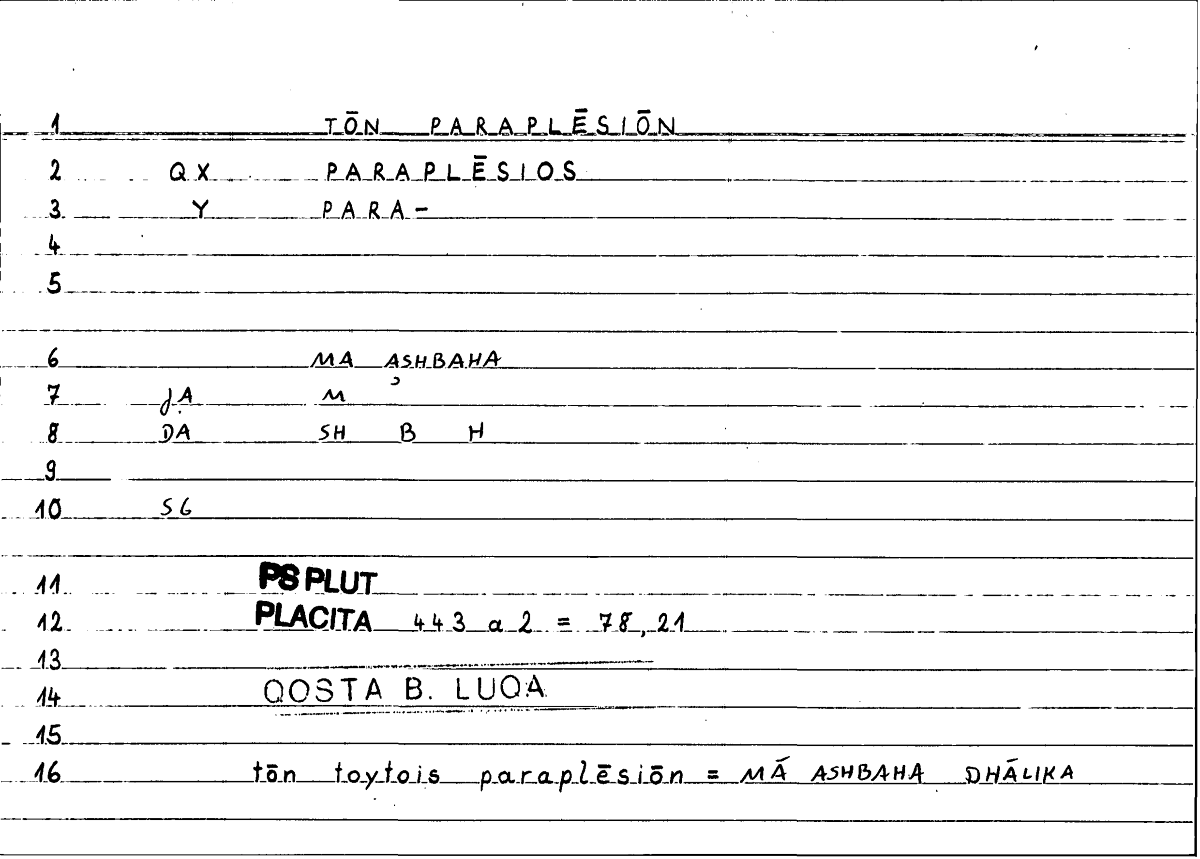 1 TŌN PARAPLĒSIŌN
2 QX PARAPLĒSIOS
3 Y PARA-
4
5
6 MA ASHBAHA
7 JA M ʾ
8 ḌA SH B H
9
10 SG
11 PS PLUT
12 PLACITA 443 a 2 = 78,21
13
14 QOSTA B. LUQA
15
16 tōn toytois paraplēsiōn = MĀ ASHBAHA DHĀLIKA